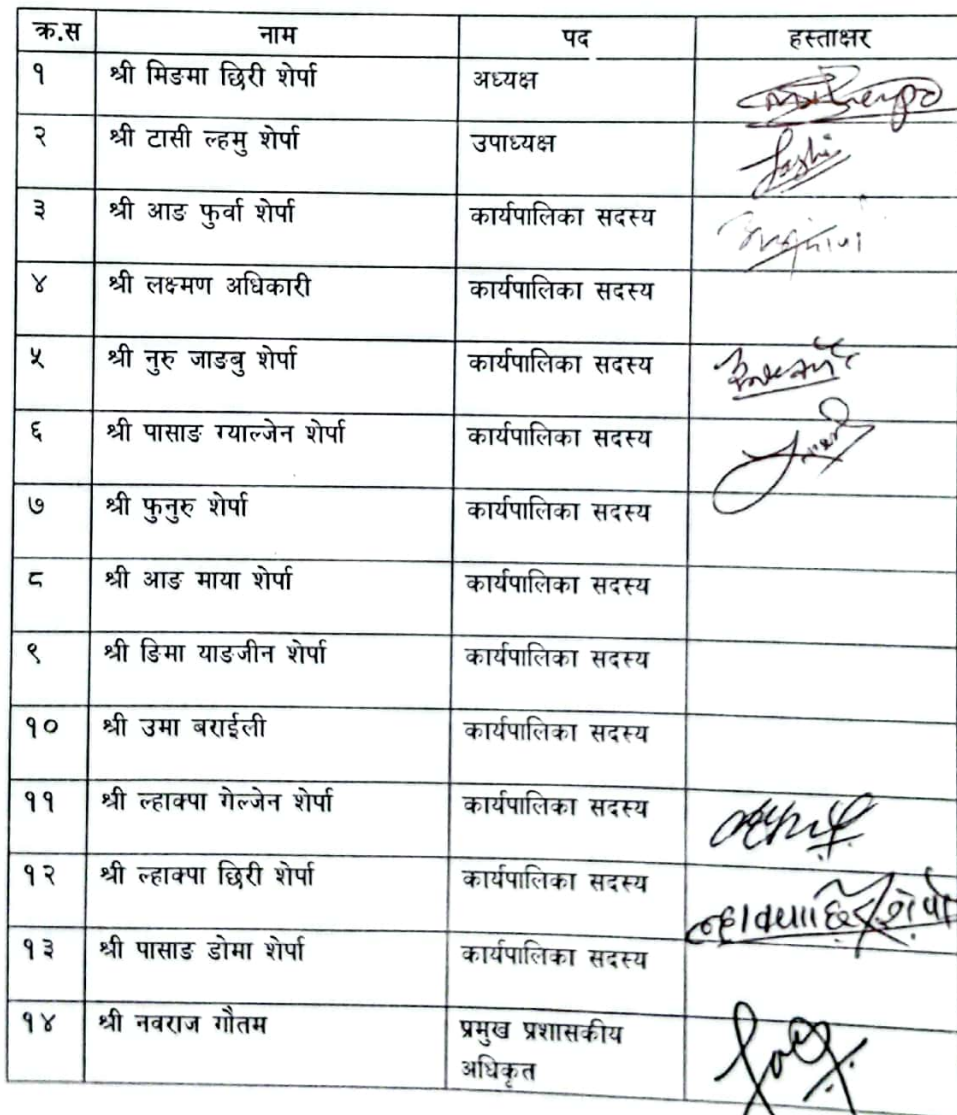 क्र.स नाम पद हस्ताक्षर
१ श्री मिङमा छिरी शेर्पा अध्यक्ष
२ श्री टासी ल्हमु शेर्पा उपाध्यक्ष
३ श्री आङ फुर्वा शेर्पा कार्यपालिका सदस्य
४ श्री लक्ष्मण अधिकारी कार्यपालिका सदस्य
५ श्री नुरु जाङबु शेर्पा कार्यपालिका सदस्य
६ श्री पासाङ ग्याल्जेन शेर्पा कार्यपालिका सदस्य
७ श्री फुनुरु शेर्पा कार्यपालिका सदस्य
८ श्री आङ माया शेर्पा कार्यपालिका सदस्य
९ श्री ङिमा याङजीन शेर्पा कार्यपालिका सदस्य
१० श्री उमा बराईली कार्यपालिका सदस्य
११ श्री ल्हाक्पा गेल्जेन शेर्पा कार्यपालिका सदस्य
१२ श्री ल्हाक्पा छिरी शेर्पा कार्यपालिका सदस्य
१३ श्री पासाङ डोमा शेर्पा कार्यपालिका सदस्य
१४ श्री नवराज गौतम प्रमुख प्रशासकीय
अधिकृत